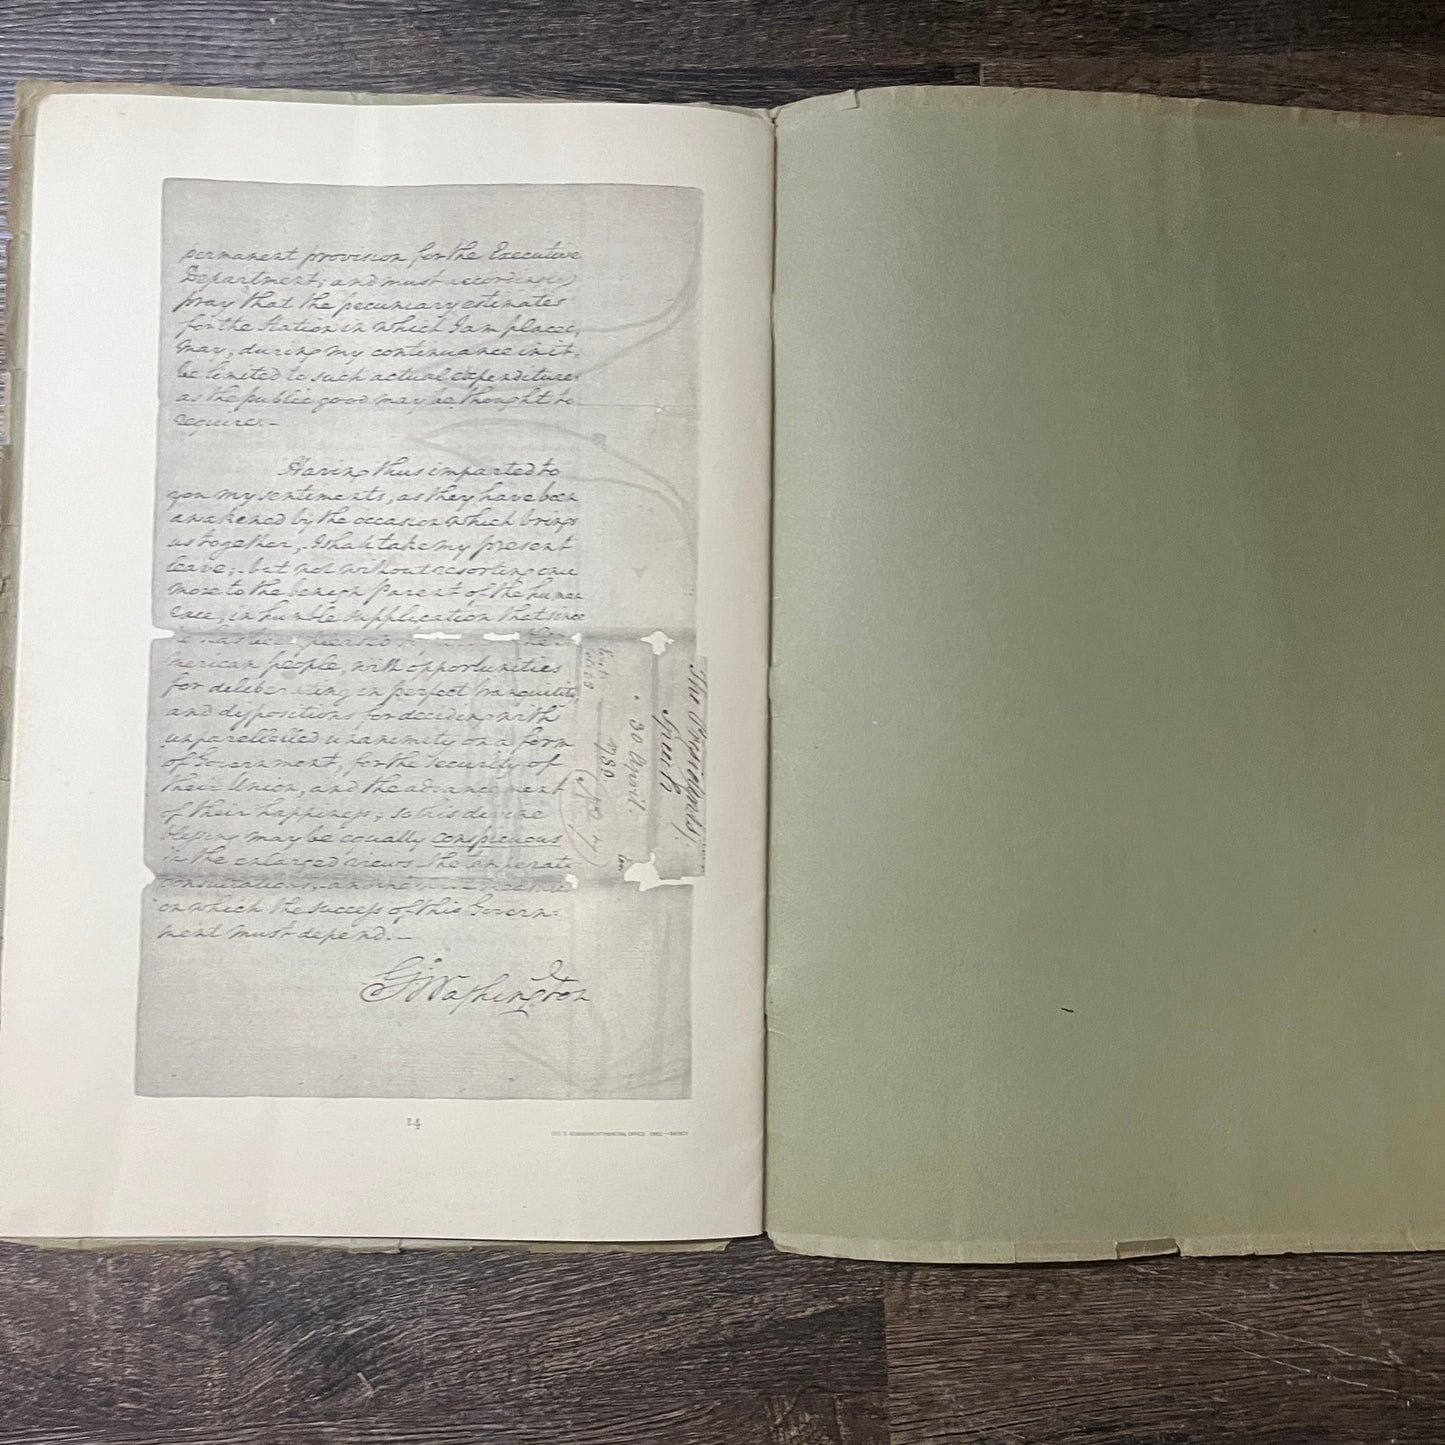 permanent provision for the Executive
Department; and must accordingly
pray that the pecuniary estimates
for the Station in which I am placed,
may, during my continuance in it,
be limited to such actual expenditures
as the public good may be thought to
require.—
Having thus imparted to
you my sentiments, as they have been
awakened by the occasion which brings
us together,—I shall take my present
leave;—but not without resorting once
more to the benign Parent of the human
race, in humble supplication that since
he has been pleased to the
American people, with opportunities
for deliberating in perfect tranquility
and dispositions for deciding with
unparellelled unanimity on a form
of Government, for the security of
their Union, and the advancement
of their happiness; so his divine
blessing may be equally conspicuous
in the enlarged views—the temperate
consultations,—and the wise measures
on which the success of this Govern=
ment must depend.—
G. Washington
The President's
Speech
30 April
1789
14
U. S. GOVERNMENT PRINTING OFFICE